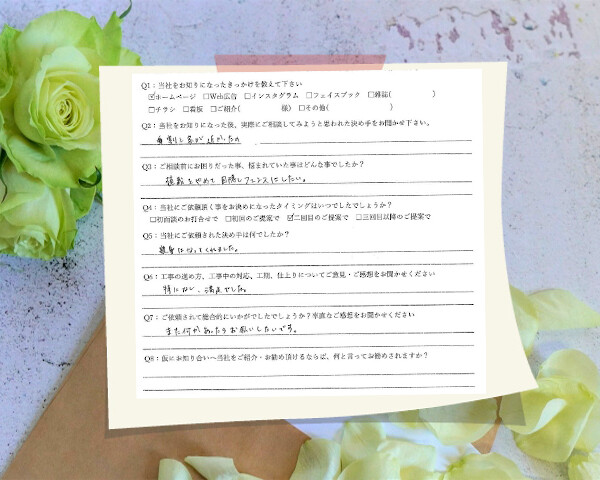 Q1：当社をお知りになったきっかけを教えて下さい
☑ホームページ □Web広告 □インスタグラム □フェイスブック □雑誌(　　　　)
□チラシ □看板 □ご紹介(　　　　様) □その他(　　　　　　)
Q2：当社をお知りになった後、実際にご相談してみようと思われた決め手をお聞かせ下さい。
割と家が近かった
Q3：ご相談前にお困りだった事、悩まれていた事はどんな事でしたか？
植栽をやめて目隠しフェンスにしたい。
Q4：当社にご依頼頂く事をお決めになったタイミングはいつでしたでしょうか？
□初面談のお打合せで □初回のご提案で ☑二回目のご提案で □三回目以降のご提案で
Q5：当社にご依頼された決め手は何でしたか？
親身になってくれました。
Q6：工事の進め方、工事中の対応、工期、仕上りについてご意見・ご感想をお聞かせください
特になし、満足でした。
Q7：ご依頼されて総合的にいかがでしたでしょうか？率直なご感想をお聞かせください
また何かあったらお願いしたいです。
Q8：仮にお知り合いへ当社をご紹介・お勧め頂けるならば、何と言ってお勧めされますか？